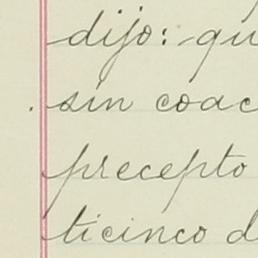 dijo: qu
sin coac
precepto
ticinco d